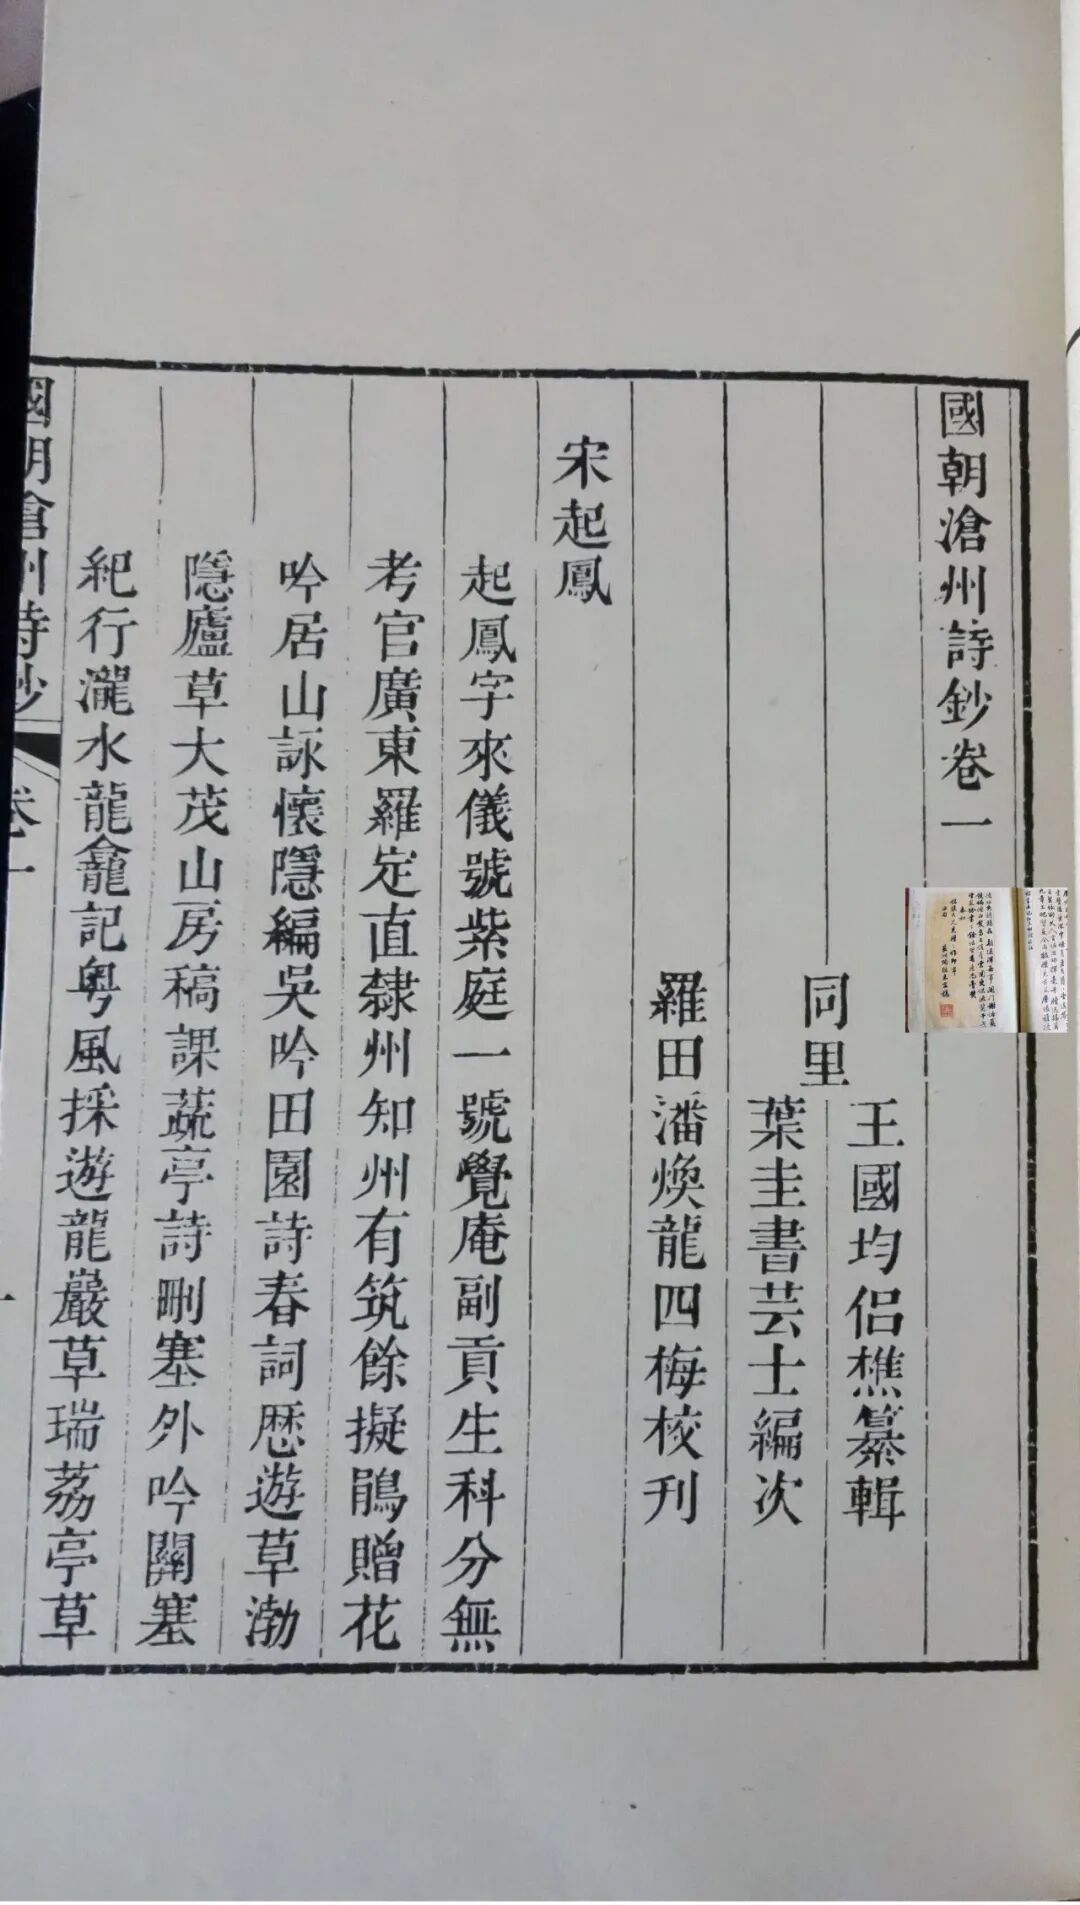 國朝滄州詩鈔卷一
同里
王國均侶樵纂輯
葉圭書芸士編次
羅田潘煥龍四梅校刊
宋起鳳
起鳳字來儀號紫庭一號覺庵副貢生科分無
考官廣東羅定直隸州知州有筑餘擬鵑贈花
吟居山詠懷隱編吳吟田園詩春詞歷遊草渤
隱廬草大茂山房稿課蔬亭詩刪塞外吟關塞
紀行瀧水龍龕記粵風採遊龍巖草瑞荔亭草
國朝滄州詩鈔
卷一
一